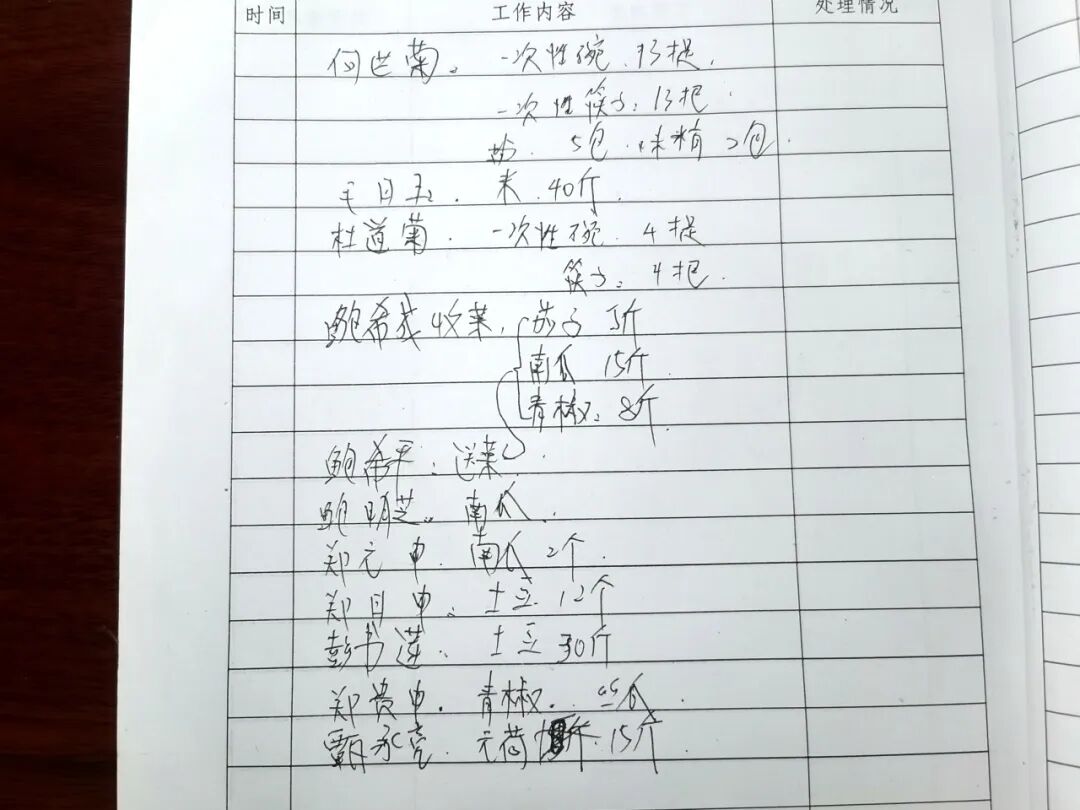 时间 工作内容 处理情况
何世菊。一次性碗.13提.
一次性筷子:13把.
5包.味精2包.
毛日玉.米.40斤.
杜道菊.一次性碗.4提
筷子:4把.
鲍希 收菜,茄子 5斤
南瓜 15斤
青椒:8斤.
鲍希平:送菜.
鲍明芝..南瓜.
郑元申.南瓜2个.
郑日申.土豆.12个
彭书莲.土豆30斤
郑贵申.青椒.丝瓜.
甄承亮.元荷 15斤